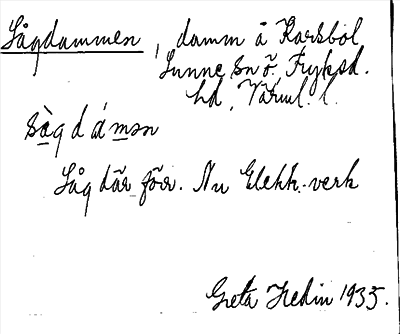 Sågdammen, damm å Karsbol
Sunne sn ö. Fryksd.
hd, Värml. l.
sågdámən
Såg där förr. Nu Elektr. verk
Greta Hedin 1935.